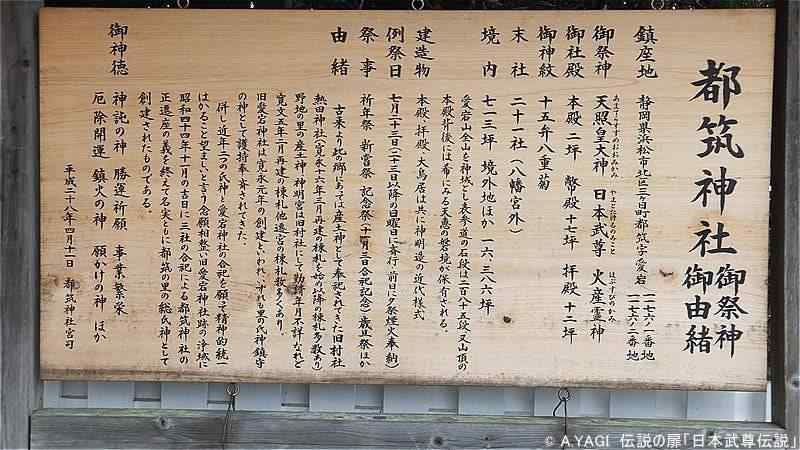 都筑神社 御祭神 御由緒
鎮座地 静岡県浜松市北区三ヶ日町都筑字愛宕 一一七六ノ一番地 一一七六ノ二番地
御祭神 天照皇大神 日本武尊 火産霊神
あまてらすすめおおみかみ やまとたけるのみこと ほぶすびのかみ
御社殿 本殿二坪 幣殿十七坪 拝殿十二坪
御神紋 十五弁八重菊
末社 二十一社（八幡宮外）
境内 七一三坪 境外地ほか 一六、三六六坪
愛宕山全山を神域とし表参道の石段は二百八十五段又山頂の
本殿背後には希にみる天恵の磐境が保有される。
建造物 本殿、拝殿、大鳥居は共に神明造の近代様式
例祭日 七月二十三日（二十三日以降の日曜日に奉行、前日に夕祭煙火奉納）
祭事 祈年祭 新嘗祭 記念祭（十一月三日合祀記念）歳旦祭ほか
由緒 古来より此の郷にあっては産土神として奉祀されてきた旧村社
熱田神社（寛永十六年三月再建の棟札を始め以降の棟札多数あり
野地の里の産土神 神明宮は旧村社にして勧請年月不詳なれど
寛文五年二月再建の棟札他遷宮の棟札数多くあり、
旧愛宕神社は寛永元年の創建といわれ、いずれも里の氏神 鎮守
の神として護持奉斉されてきた。
併し近年二つの氏神と愛宕神社の合祀を願う精神的統一
はかること望ましいと言う念願相整い旧愛宕神社跡の浄域に
昭和四十四年十一月の吉日に三社の合祀による都筑神社の
正遷座の義を終えて名実ともに都筑の里の総氏神として
創建されたものである。
御神徳 神託の神 勝運祈願 事業繁栄
厄除開運 鎮火の神 願かけの神 ほか
平成二十八年四月十一日 都筑神社宮司
© A.YAGI 伝説の扉「日本武尊伝説」